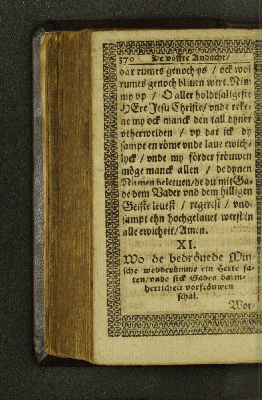 370 De voffte Andacht/
dar rumes genoch ys / ock wol
rumes genoch blyuen wert. Nim
my vp / O aller holdtsaligeste
HEre Jesu Christe/ vnde reke-
ne my ock manck den tall dyner
vtherwelden / vp dat ick dy
sampt en röme vnde laue ewich-
lyck / vnde my förder fröuwen
möge manck allen / de dynen
Namen beleuen/ de du mit Ga-
de dem Vader vnd dem hilligen
Geiste leuest / regerest / vnd
sampt ehn hochgelauet werst in
alle ewicheit/ Amen.
XI.
Wo de bedröuede Min-
sche wedderümme ein Herte fa-
ten/ vnde sick Gades
herrlicheit vorfröuwen
schal.
Wor-